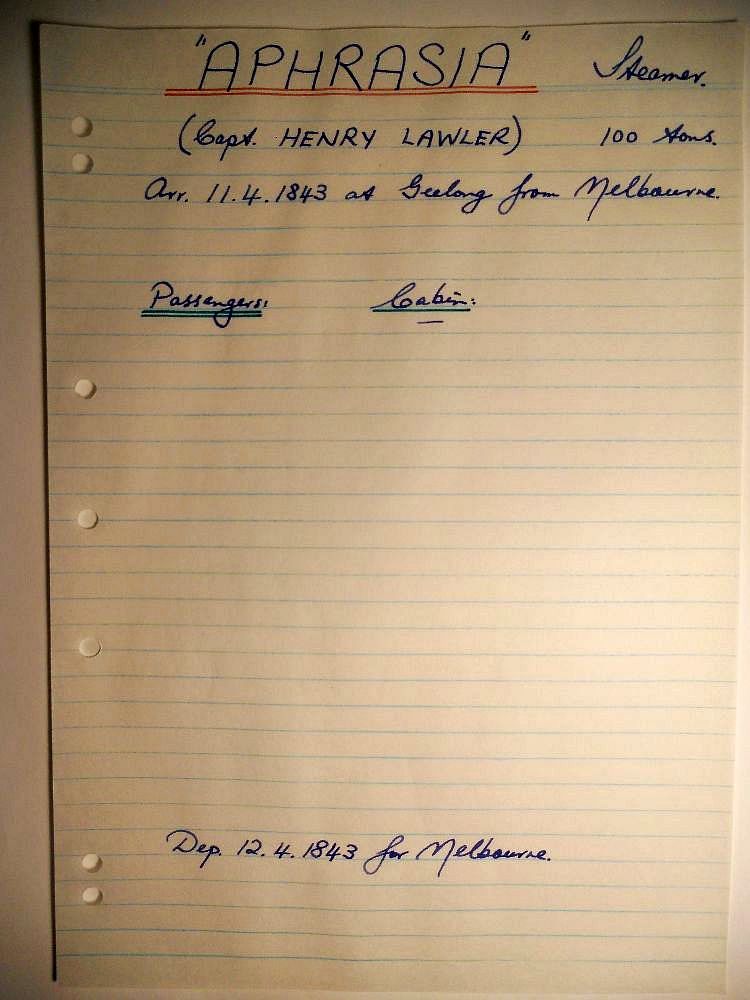 "APHRASIA" Steamer.
(Capt. HENRY LAWLER) 100 tons.
Arr. 11.4.1843 at Geelong from Melbourne.
Passengers: Cabin:
Dep. 12.4.1843 for Melbourne.